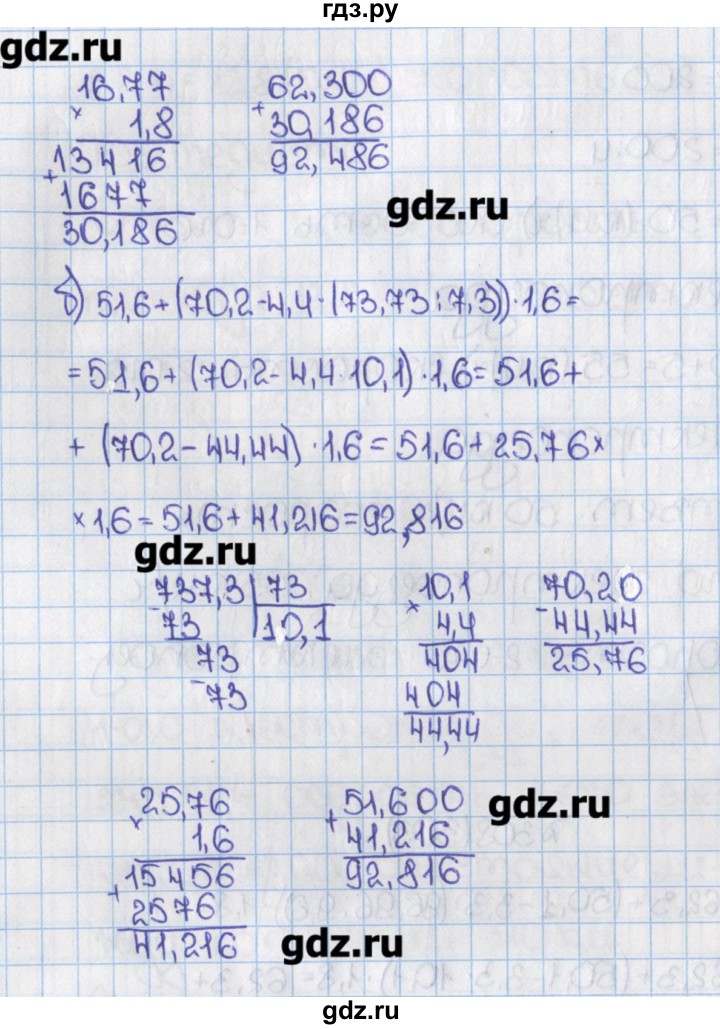 гдз.ру
gdz.ru
16,77
× 1,8
13416
+ 1677
30,186
62,300
+ 30,186
92,486
gdz.ru
б) 51,6+(70,2-4,4·(73,73:7,3))·1,6=
=51,6+(70,2-4,4·10,1)·1,6=51,6+
+(70,2-44,44)·1,6=51,6+25,76×
×1,6=51,6+41,216=92,816
gdz.ru
737,3 | 73
- 73 | 10,1
73
- 73
10,1
× 4,4
404
404
44,44
70,20
- 44,44
25,76
25,76
× 1,6
+ 15456
2576
41,216
51,600
+ 41,216
92,816
gdz.ru
gdz.ru
gdz.ru